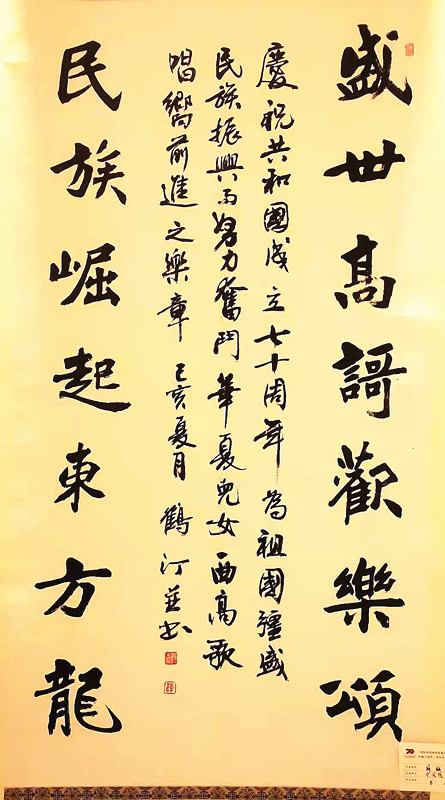 盛世高謌歡樂頌
慶祝共和國成立七十周年 為祖國強盛
民族振興而努力奮鬥 華夏兒女西高歌
唱嚮前進之樂章 己亥夏月 鶴汀並書
民族崛起東方龍